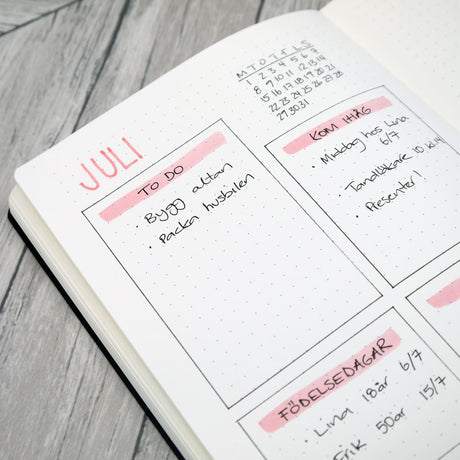 JULI
M T O T F L S
1 2 3 4 5 6 7
8 9 10 11 12 13 14
15 16 17 18 19 20 21
22 23 24 25 26 27 28
29 30 31
TO DO
• Bygg altan
• Packa husbilen
KOM IHÅG
• Middag hos Lina
6/7
Tandläkare 10 kl 14
• Presenter!
FÖDELSEDAGAR
• Lina 18år 6/7
Erik 50år 15/7